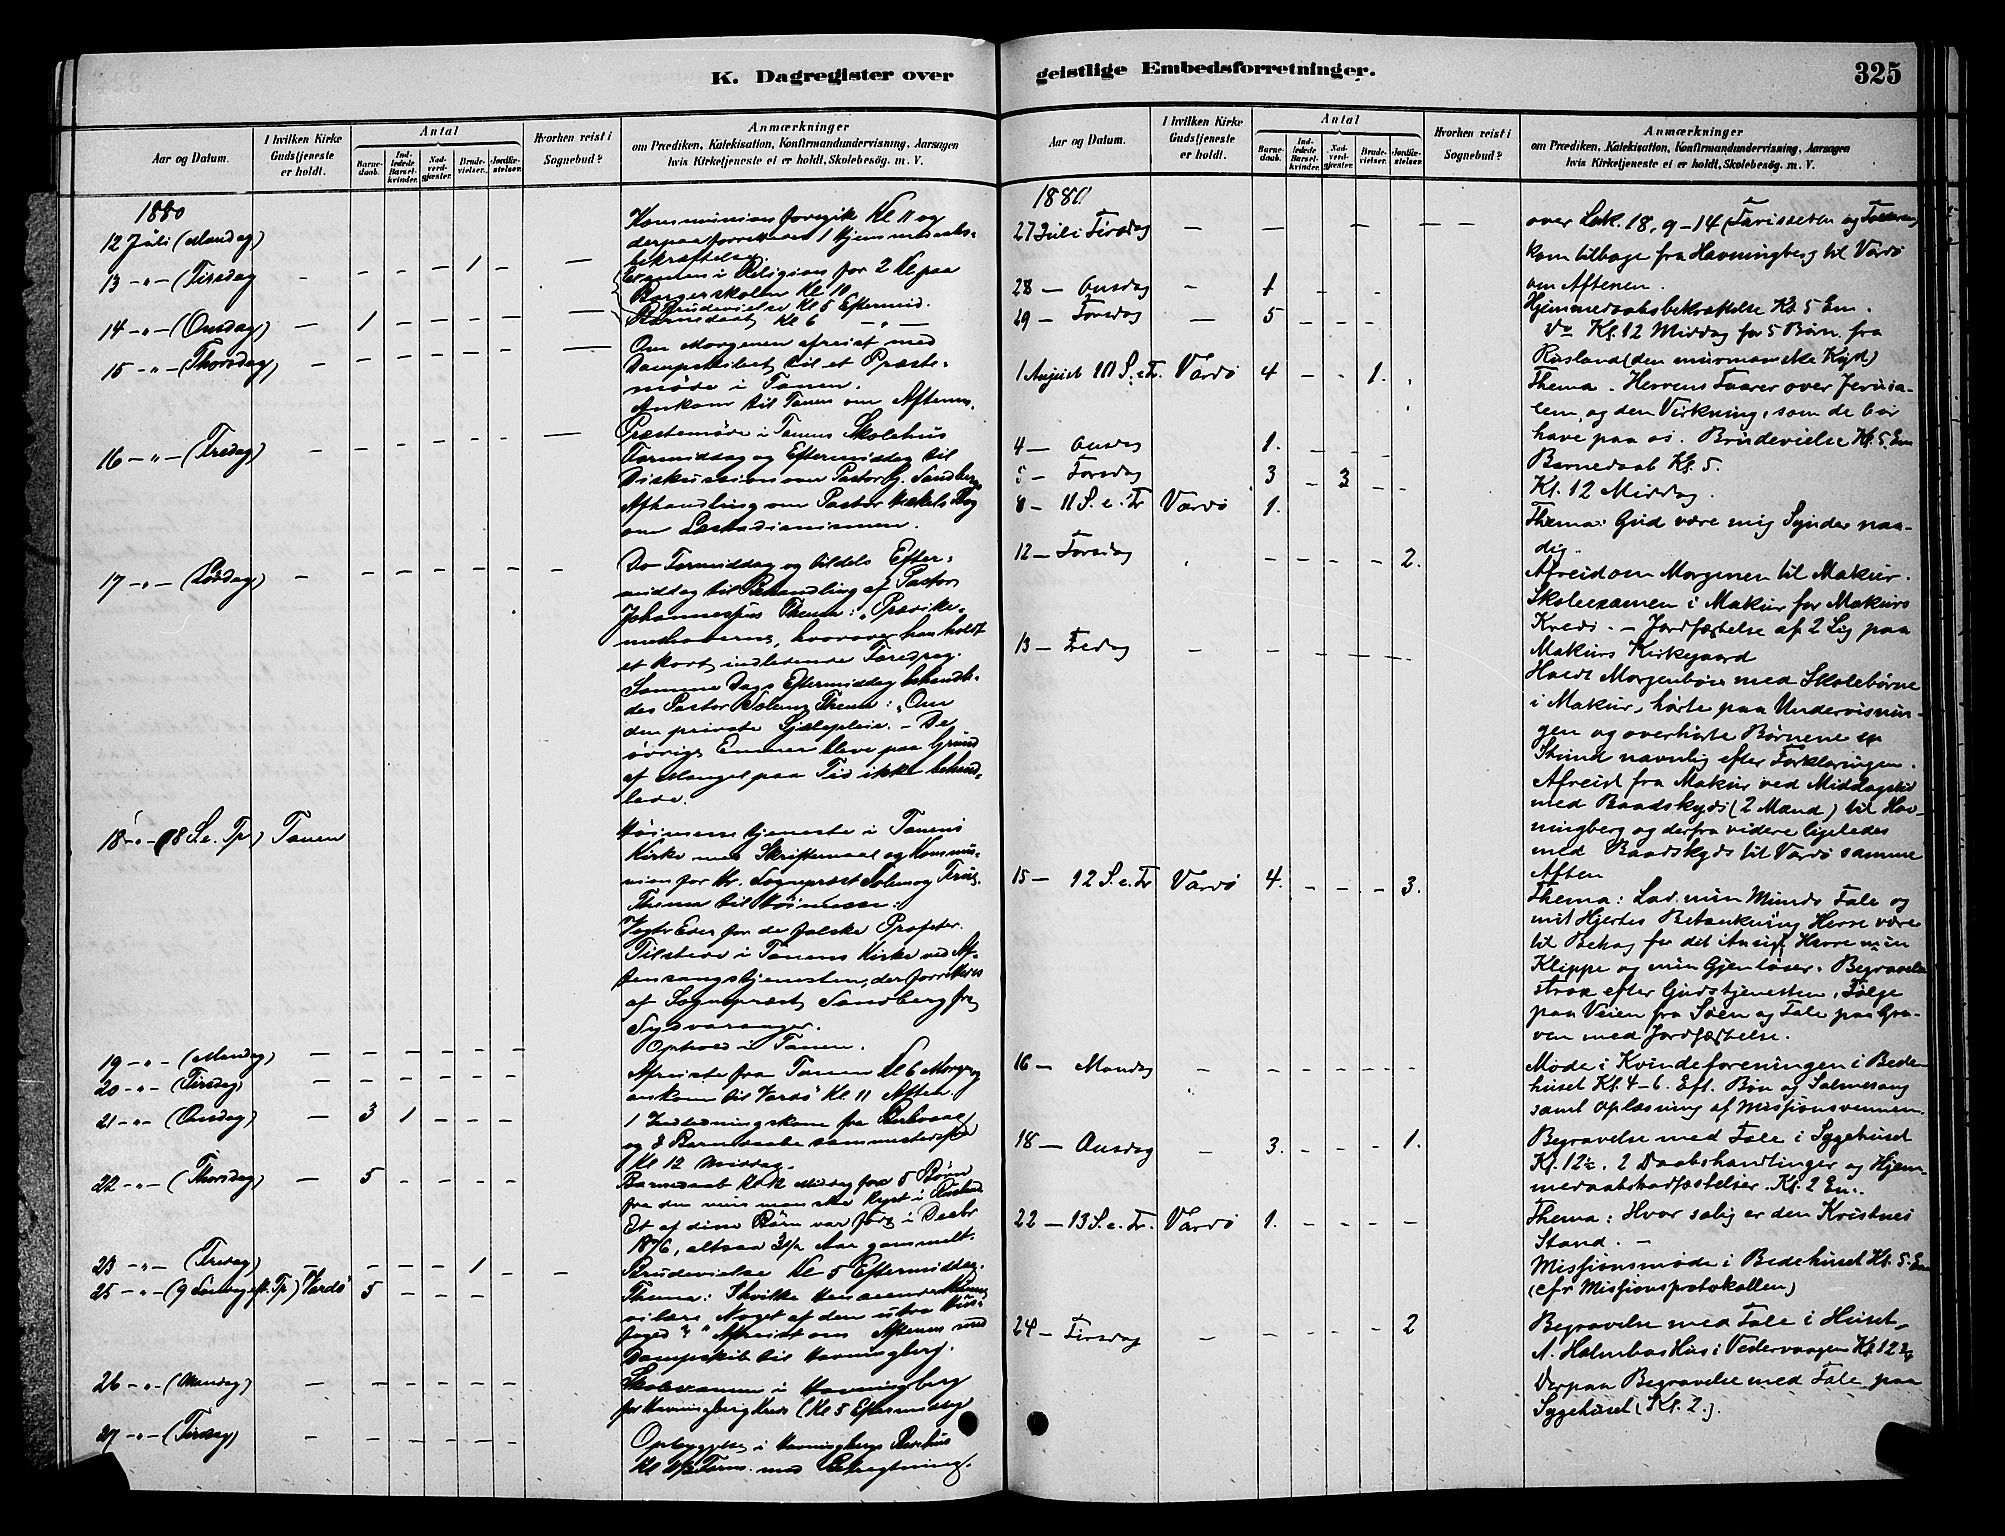 K. Dagregister over
geistlige Embedsforretninger.
325
Aar og Datum.
I hvilken Kirke Gudstjeneste er holdt.
Antal
Barnedaab.
Indledede Barselkvinder.
Nadverdgjæster.
Brudevielser.
Jordfæstelser.
Hvorhen reist i Sognebud?
Anmærkninger
om Prædiken, Katekisation, Konfirmandundervisning, Aarsagen
hvis Kirketjeneste ei er holdt, Skolebesög. m. V.
1880
12 Juli (Mandag)
Kommunion foregik Kl 11 og
derpaa forrettedes 1 Hjemmedaabs-
bekræftelse.
13 -"- (Tirsdag — — — — 1 — —
Examen i Religion for 2 Kl paa
Borgerskolen Kl 10.
Brudevielse Kl 5 Eftermid.
14 -"- (Onsdag) — 1 — — — — —
Barnedaab Kl 6 -"-
15 -"- (Thorsdag) — — — — — — —
Om Morgenen afreist med
Dampskibet til et Præste-
møde i Tanen.
Ankom til Tanen om Aftenen.
16 -"- (Fredag) — — — — — — —
Præstemøde i Tanens Skolehus
Formiddag og Eftermiddag til
Diskussion over Pastor Sandbergs
Afhandling om Pastor Bog
om Læstadianismen.
17 -"- (Lørdag) — — — — — — —
Do Formiddag og tildels Efter-
middag til Behandling af Pastor
Johannessens Thema: "Prædike-
methoderne, hvorover han holdt
et kort indledende Foredrag.
Samme Dags Eftermiddag behandle-
des Pastor Solems Thema: "Om
den private Sjælepleie. – De
øvrige Emner bleve paa Grund
af Mangel paa Tid ikke behand-
lede.
18 -"- (8 S. e. Tr) Tanen
Høimessetjeneste i Tanens
Kirke med Skriftemaal og Kommu-
nion for Hr. Sognepræst Solem og Frue.
Thema til Høimesse:
Vogter Eder for de falske Profeter.
Tilstede i Tanens Kirke ved Af-
tensangstjenesten, der forrettedes
af Sognepræst Sandberg fra
Sydvaranger.
19 -"- (Mandag) — — — — — —
Ophold i Tanen.
20 -"- (Tirsdag) — — — — — —
Afreiste fra Tanen Kl 6 Morgen og
ankom til Vardø Kl 11 Aften.
21 -"- (Onsdag) — 3 1 — — —
1 Indledningskone fra
og 3 Barnedaabe sammesteds fra
Kl 12 Middag.
22 -"- (Thorsdag) — 5 — — — —
Barnedaab Kl 12 Middag for 5 Børn
fra den murmanske Kyst i Rusland
Et af disse Børn var født i Decbr
1876, altsaa 3½ Aar gammelt.
23 -"- (Fredag) — — — — 1 — —
Brudevielse Kl 5 Eftermiddag.
25 -"- (9 Søndag eft. Tr) Vardø 5 — — —
Thema: I hvilke Henseender
vi lære Noget af den utro Hus-
foged?" Afreist om Aftenen med
Dampskib til Havningberg.
26 -"- (Mandag) — — — — — —
Skoleexamen i Havningberg
for Havningberg Kreds (Kl 5 Eftermiddag
27 -"- (Tirsdag) — — — — — —
Opbyggelse i Havningbergs Bedehus
Kl Form. med
Aar og Datum.
I hvilken Kirke Gudstjeneste er holdt.
Antal
Barnedaab.
Indledede Barselkvinder.
Nadverdgjæster.
Brudevielser.
Jordfæstelser.
Hvorhen reist i Sognebud?
Anmærkninger
om Prædiken, Katekisation, Konfirmandundervisning, Aarsagen
hvis Kirketjeneste ei er holdt, Skolebesög. m. V.
1880
27 Juli Tirsdag — — — — — — — —
over Luk. 18, 9–14 (Farisæeren og Tolderen)
kom tilbage fra Havningberg til Vardø
om Aftenen.
28 — Onsdag — 1 — —
Hjemmedaabsbekræftelse Kl. 5 Em.
29 — Torsdag — 5 — — —
Do Kl. 12 Middag for 5 Børn fra
Rusland (den murmanske Kyst)
1 August 10 S. e Tr. Vardø 4 — — 1.
Thema. Herrens Taarer over Jerusa-
lem, og den Virkning, som de bør
have paa os. Brudevielse Kl. 5. Em
4 — Onsdag 1. — — —
Barnedaab Kl. 5.
5 — Torsdag 3 — 3 — —
Kl. 12 Middag.
8 — 11 S. e. Tr Vardø 1.
Thema: Gud være mig Synder naa-
dig.
12 — Torsdag — — — — 2.
Afreid om Morgenen til Makur.
Skoleexamen i Makur for Makurs
Kreds. – Jordfæstelse af 2 Lig paa
Makurs Kirkegaard
13 — Fredag — — — — — —
Holdt Morgenbøn med Skolebørne
i Makur, hørte paa Undervisnin-
gen og overhørte Børnene en
Stund navnlig efter Forklaringen.
Afreist fra Makur ved Middagstid
med Baadskyds (2 Mand) til Hav-
ningberg og derfra videre ligeledes
med Baadskyds til Vardø samme
Aften
15 — 12 S. e. Tr Vardø 4. — — — 3.
Thema: Lad min Munds Tale og
mit Hjertes Betænkning Herre være
til Behag for dit Ansigt, Herre min
Klippe og min Gjenløser. Begravelse
strax efter Gudstjenesten, Følge
paa Veien fra Søen og Tale paa Gra-
ven med Jordfæstelse.
16 — Mandag — — — — — —
Møde i Kvindeforeningen i Bede-
huset Kl. 4–6. Eft. Bøn og Salmesang
samt Oplæsning af Missionsvennen.
18 — Onsdag — 3. — — — 1.
Begravelse med Tale i Sygehuset
Kl. 12½. 2 Daabshandlinger og Hjem-
medaabsstadfæstelser. Kl. 2 Em.
22 — 13 S. e. Tr. Vardø 1. — — — —
Thema: Hvor salig er den Kristnes
Stand. —
Missionsmøde i Bedehuset Kl. 5. Em
(cfr Missionsprotokollen)
24 — Tirsdag — — — — — 2
Begravelse med Tale i Huset,
A. Holmboes Hus i Vedervaagen Kl. 12
Derpaa Begravelse med Tale paa
Sygehuset (Kl. 2.).